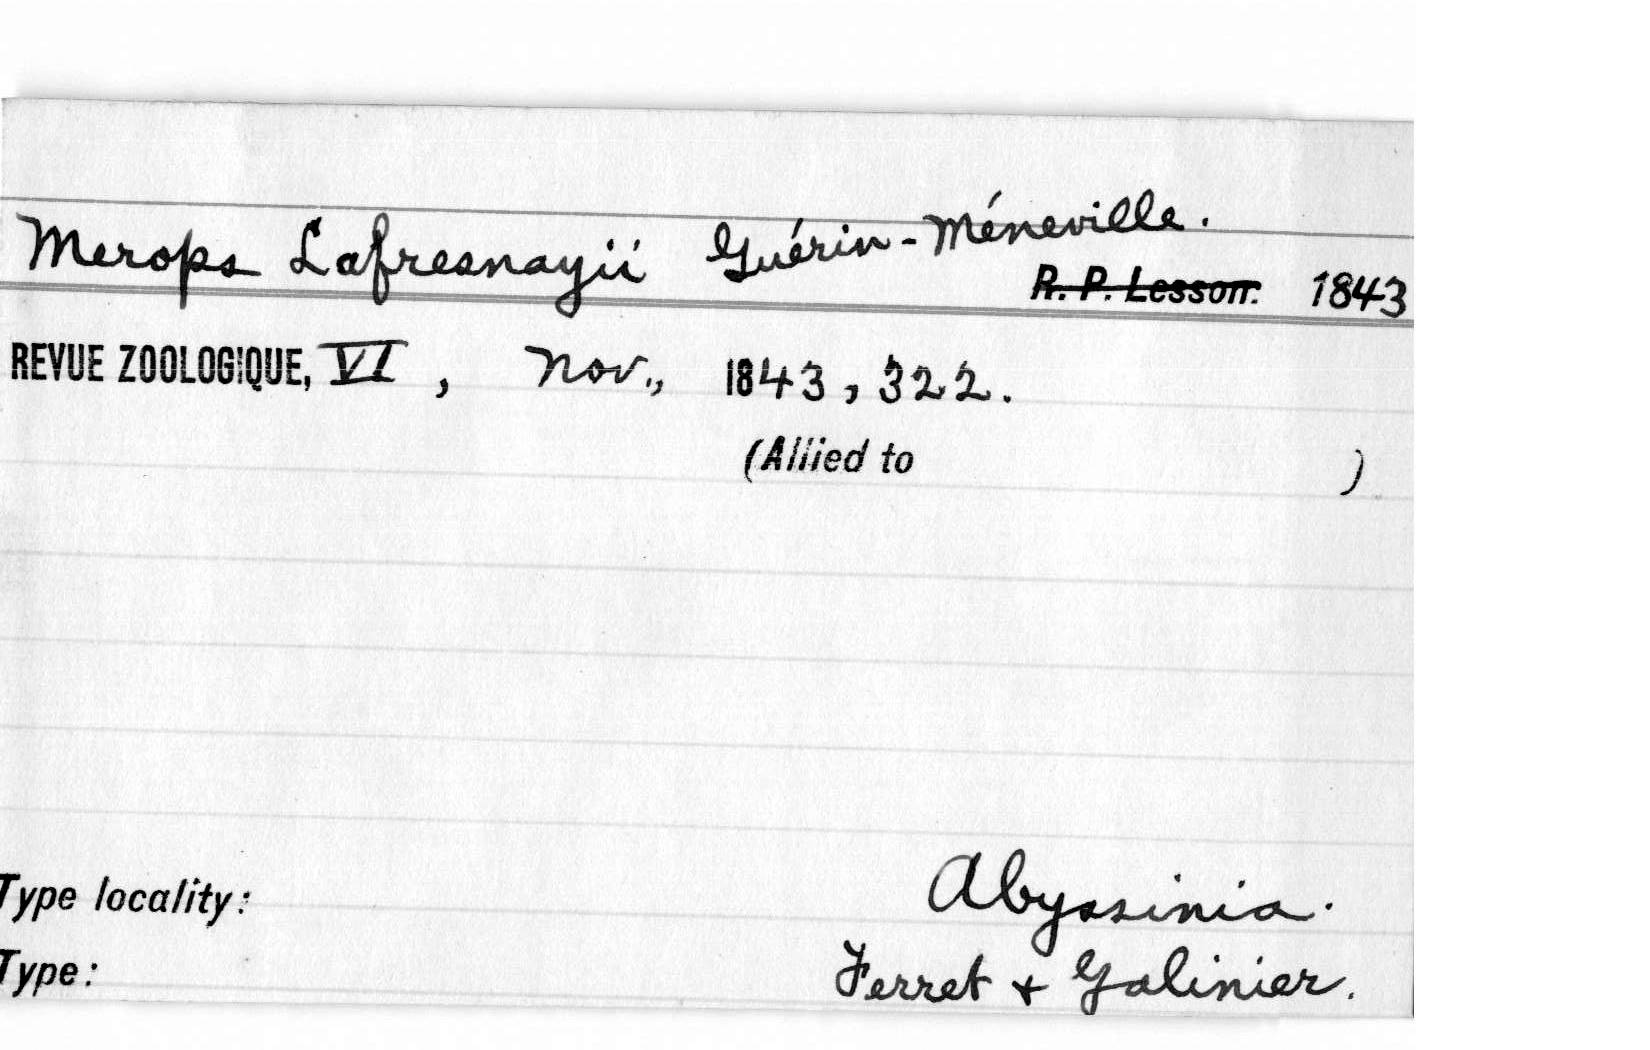 Merops Lafresnayii Guérin-Méneville.
R. P. Lesson. 1843
REVUE ZOOLOGIQUE, VI, Nov., 1843, 322.
(Allied to )
Type locality: Abyssinia.
Type: Ferret + Galinier.